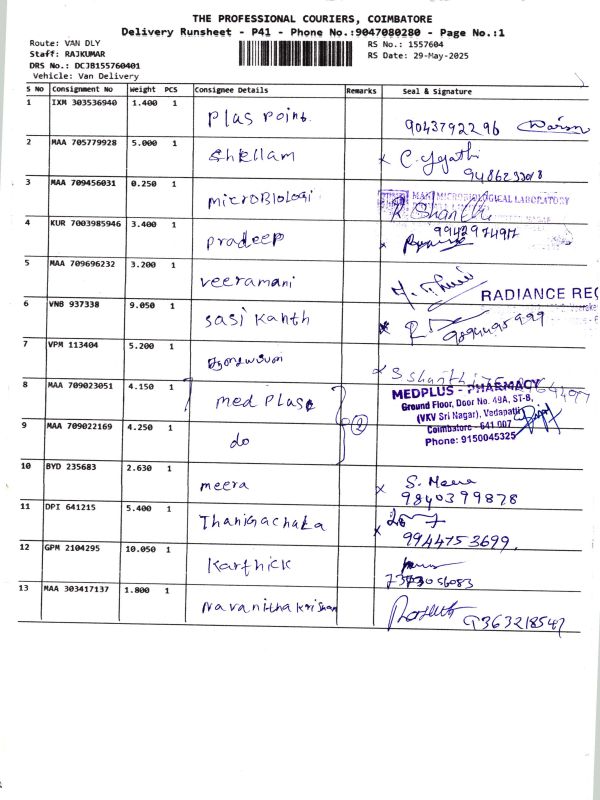 THE PROFESSIONAL COURIERS, COIMBATORE
Delivery Runsheet - P41 - Phone No.:9047080280 - Page No.:1
Route: VAN DLY RS No.: 1557604
Staff: RAJKUMAR RS Date: 29-May-2025
DRS No.: DCJB155760401
Vehicle: Van Delivery
S No Consignment No Weight PCS Consignee Details Remarks Seal & Signature
1 IXM 303536940 1.400 1 Plas Point. 9043792296
2 MAA 705779928 5.000 1 Shellam x C.
9486233018
3 MAA 709456031 0.250 1 microBiologi MICROBIOLOGICAL LABORATORY
R Shanthi
4 KUR 7003985946 3.400 1 pradeep x 9942974917
5 MAA 709696232 3.200 1 veeramani
RADIANCE REC
6 VNB 937338 9.050 1 sasi kanth x 9894495999
7 VPM 113404 5.200 1 S shanthi
8 MAA 709023051 4.150 1 med Plase MEDPLUS - PHARMACY
Ground Floor, Door No. 49A, ST-B,
(VKV Sri Nagar), Vadapatti
9 MAA 709022169 4.250 1 do 2 Coimbatore - 641 007
Phone: 9150045325
10 BYD 235683 2.630 1 meera x S. Meera
9840399878
11 DPI 641215 5.400 1 Thanigachaka x
9944753699.
12 GPM 2104295 10.050 1 Karthick
7373056083
13 MAA 303417137 1.800 1 Navanithakrishnan 9363218547